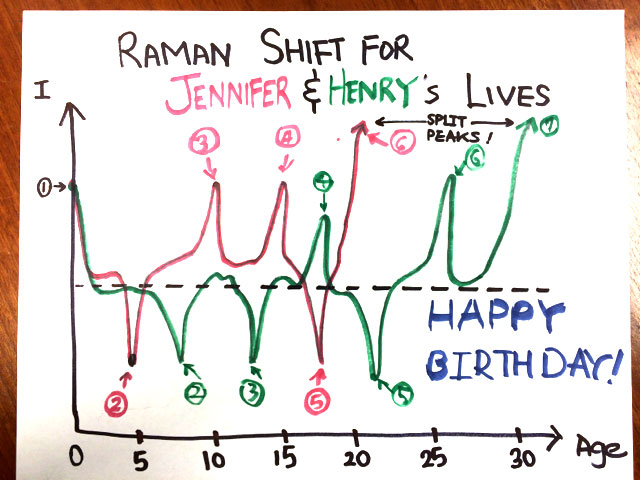 RAMAN SHIFT FOR
JENNIFER & HENRY's LIVES
I
SPLIT
PEAKS!
7
3
4
6
6
4
1
HAPPY
BIRTHDAY!
2
2
3
5
5
0 5 10 15 20 25 30 Age